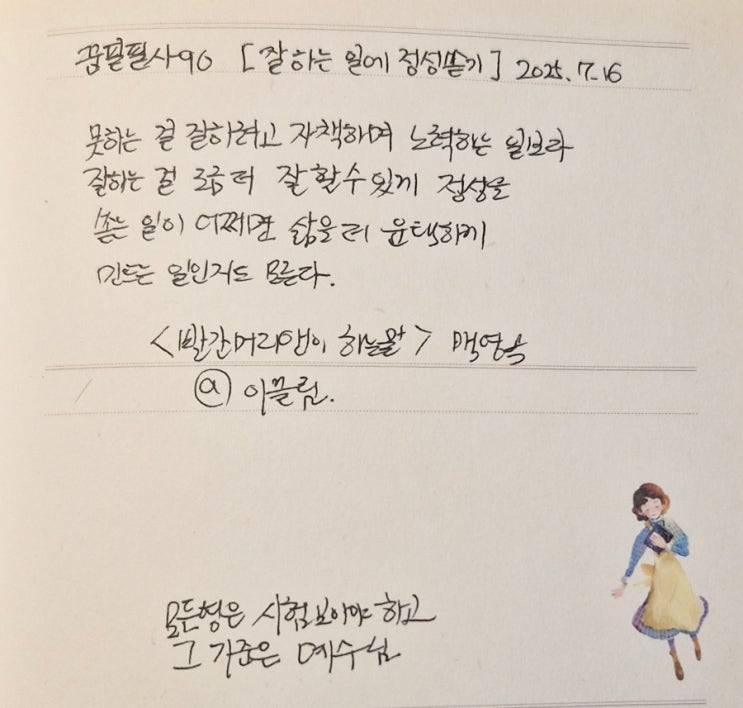 꿈필필사96 [잘하는 일에 정성쏟기] 2025.7.16
못하는 걸 잘하려고 자책하며 노력하는 일보다
잘하는 걸 조금 더 잘 할 수 있게 정성을
쏟는 일이 어쩌면 삶을 더 윤택하게
만드는 일인지도 모른다.
<빨간머리앤이 하는말> 백영옥
ⓐ 이끌림.
모든 형은 시험보아야 하고
그 기준은 예수님